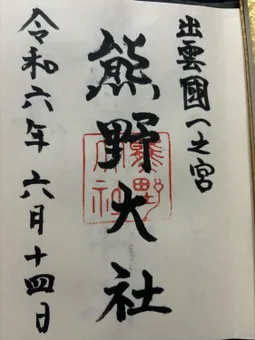 出雲國一之宮
熊野大社
熊野大社
令和六年六月十四日